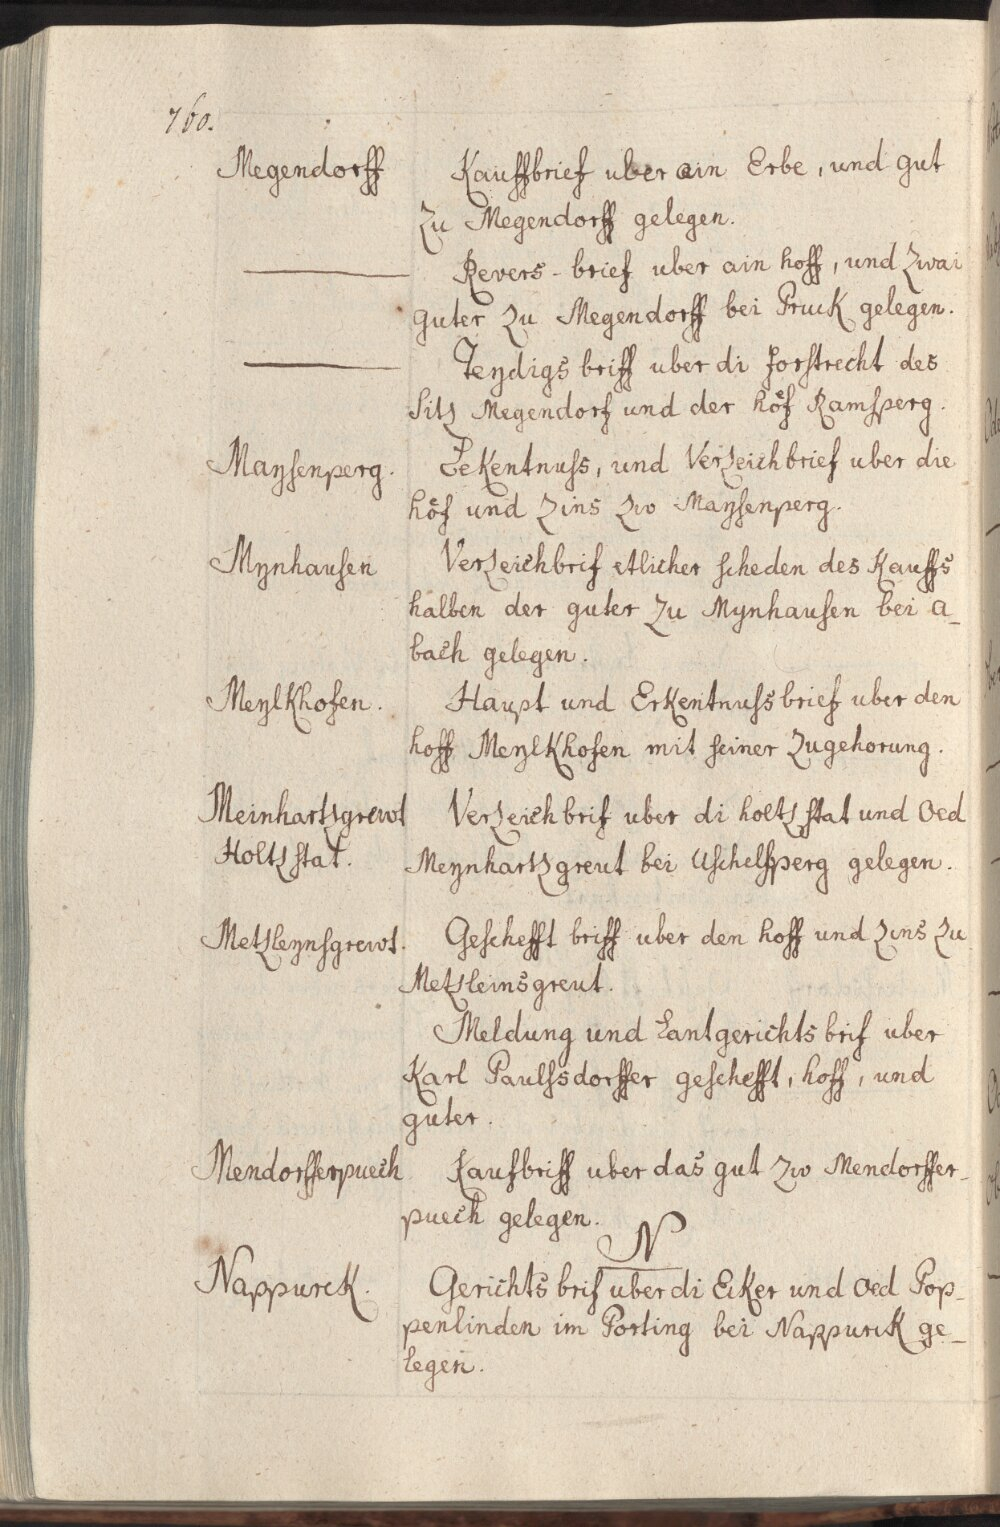 760.
Megendorff Kauffbrief uber ain Erbe, und gut
zu Megendorff gelegen.
Revers-brief uber ain hoff, und zwai
guter zu Megendorff bei Pruck gelegen.
Teydigs briff uber di forstrecht des
sitz Megendorf und der höf Ramsperg.
Maysenperg. Bekentnuss, und Verzeichbrief uber die
höf und zins zw Maysenperg.
Mynhausen Verzeichbrif etlicher scheden des Kauffs
halben der guter zu Mynhausen bei a_
bach gelegen.
Meylkhofen. Haupt und Erkentnussbrief uber den
hoff Meylkhofen mit seiner zugehorung.
Meinhartzgrewt Verzeichbrif uber di holtzstat und Oed
Holtzstat. Meynhartzgreut bei Uschelsperg gelegen.
Metzleynsgrewt. Geschefft briff uber den hoff und zins zu
Metzleinsgreut.
Meldung und Lantgerichts brif uber
Karl Paulssdorffer geschefft, hoff, und
guter.
Mendorfferpuech Kaufbriff uber das gut zw Mendorffer_
puech gelegen.
N
Nappurck. Gerichts brif uber di Eiker und Oed Pop_
penlinden im Porting bei Nappurck ge_
legen.